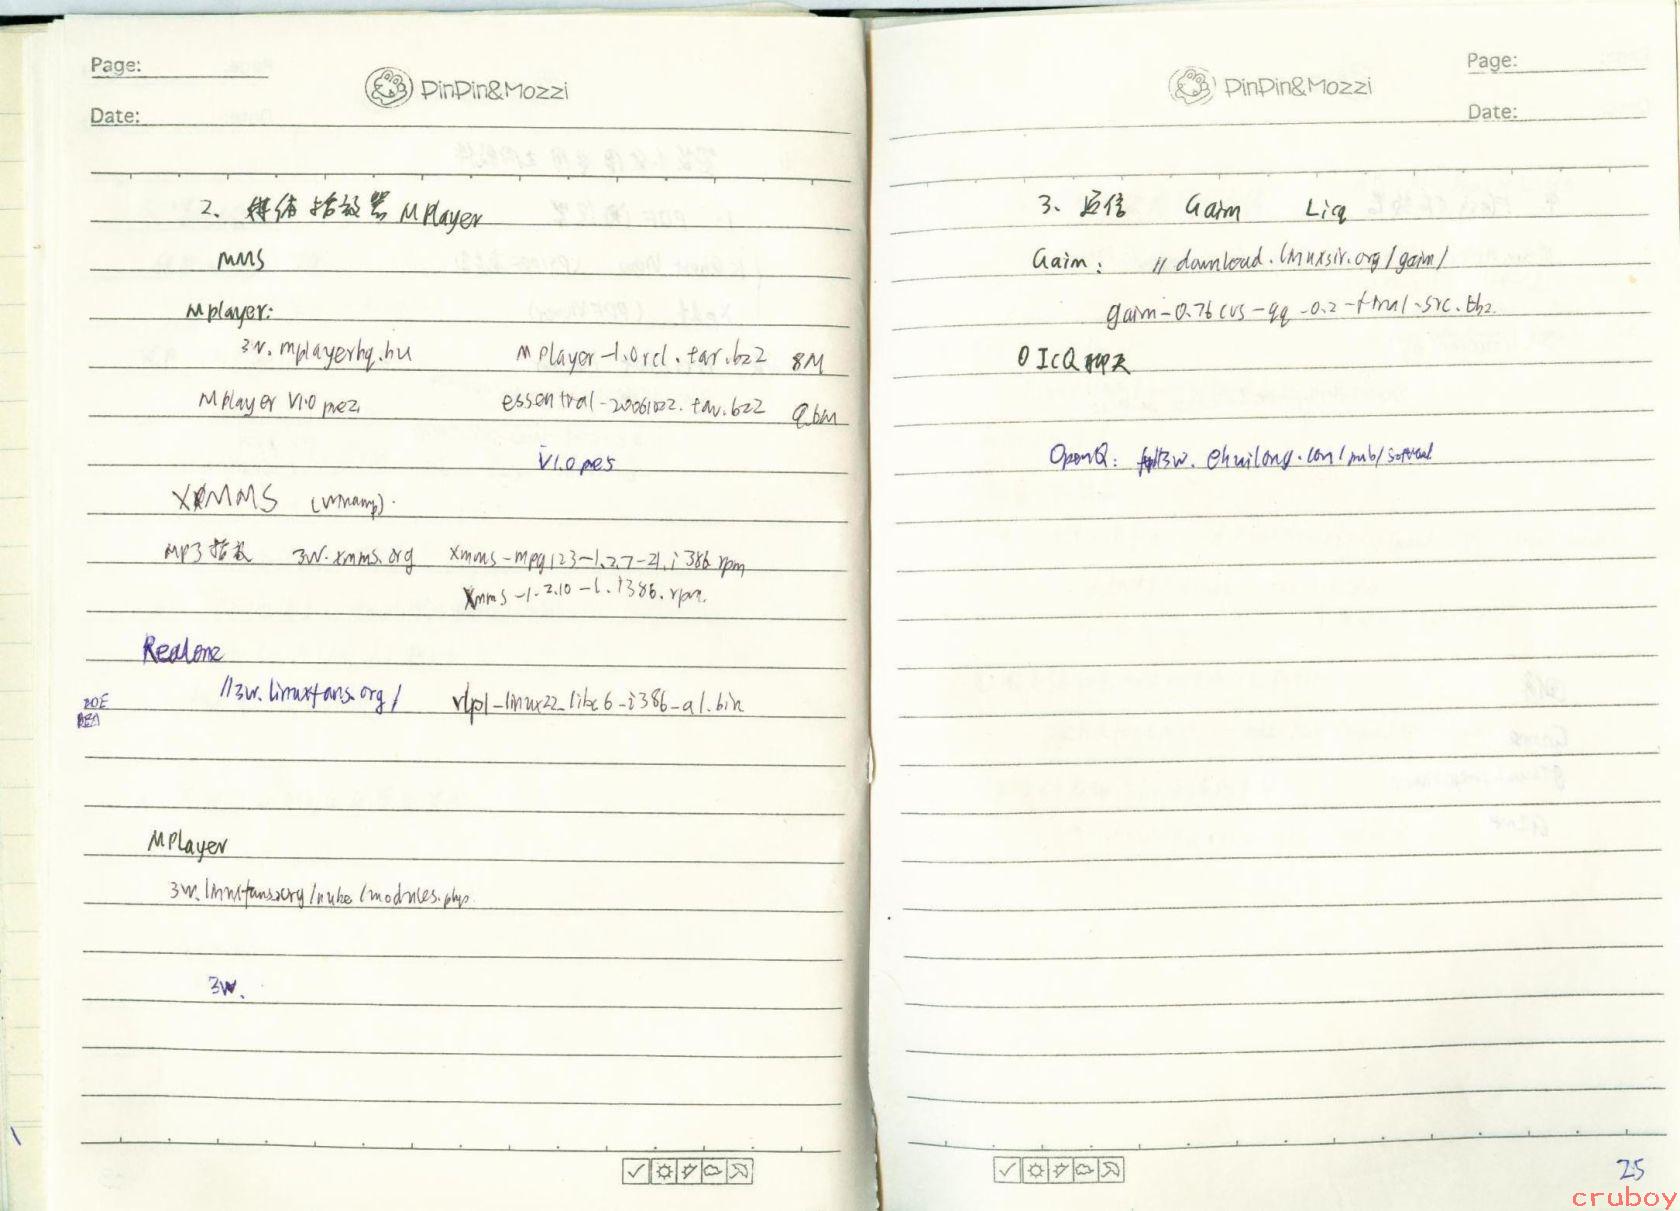 Page:
DinDin&Mozzi
Date:
2、媒体播放器 MPlayer
MMS
Mplayer:
3w.mplayerhq.hu MPlayer-1.0rc1.tar.bz2 8M
Mplayer V1.0pre2, essential-20061022.tar.bz2 9.6M
V1.0pre5
XMMS (Winamp).
MP3播放 3w.xmms.org xmms-mpg123-1.2.7-21.i386.rpm
Xmms-1.2.10-1.i386.rpm
Realone
//3w.linuxfans.org/ rlp1-linux22-libc6-i386-a1.bin
MPlayer
3w.linuxfans.org/nuke/modules.php
3w.
Page:
DinDin&Mozzi
Date:
3、通信 Gaim Licq
Gaim: //download.linuxsir.org/gaim/
gaim-0.76cvs-qq-0.2-final-src.tbz
OICQ聊天
OpenQ: 3w.
25
cruboy